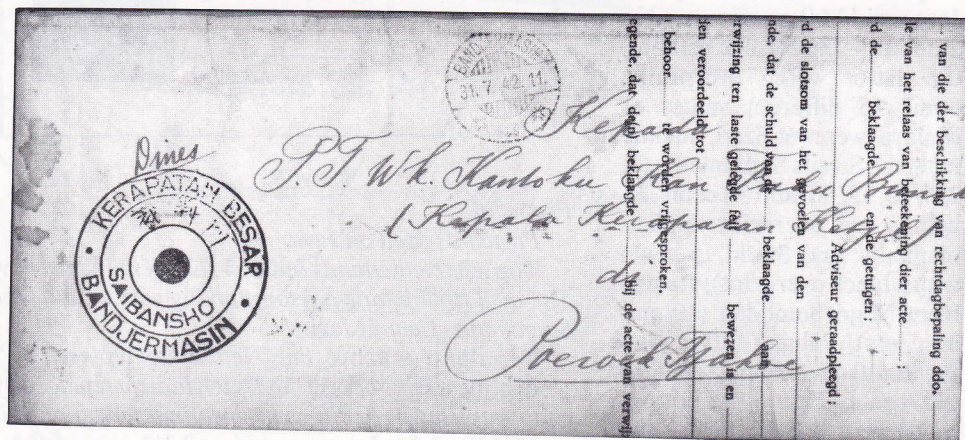 Dines
KERAPATAN BESAR
SAIBANSHO
BANDJERMASIN
BANDJERMASIN
31. 7. 42. 11.
Kepada
P. T. Wk. Kantoku Kan
( Kepala Kerapatan Ketjil )
di
Poeroek Tjahoe
van die der beschikking van rechtdagbepaling ddo.
le van het relaas van beteekening dier acte ;
d de beklaagde en de getuigen ;
Adviseur geraadpleegd ;
d de slotsom van het gevoelen van den
nde, dat de schuld van de beklaagde aan
rwijzing ten laste gelegde feit bewezen is en
den veroordeeld tot
behoor te worden vrijgesproken.
egende, dat de(n) beklaagde bij de acte van verwij